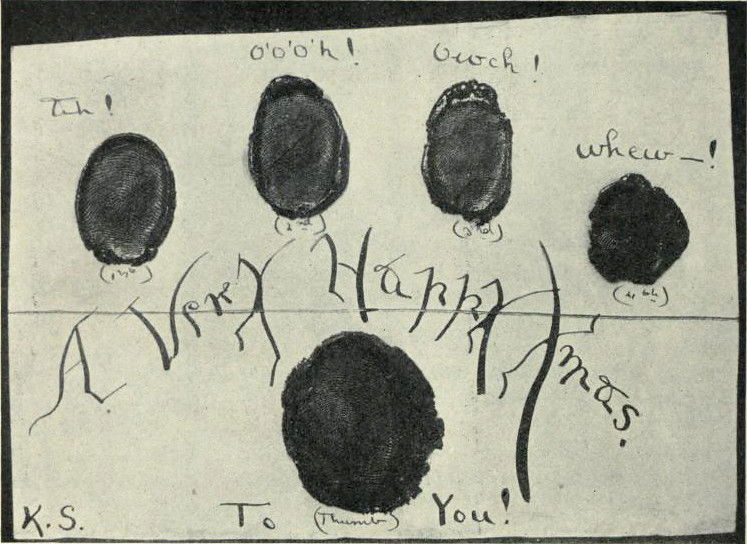 O'o'o'h!
Owch!
whew—!
(1st)
(2nd)
(3rd)
(4th)
A Very Happy Xmas.
To (Thumb) You!
K.S.